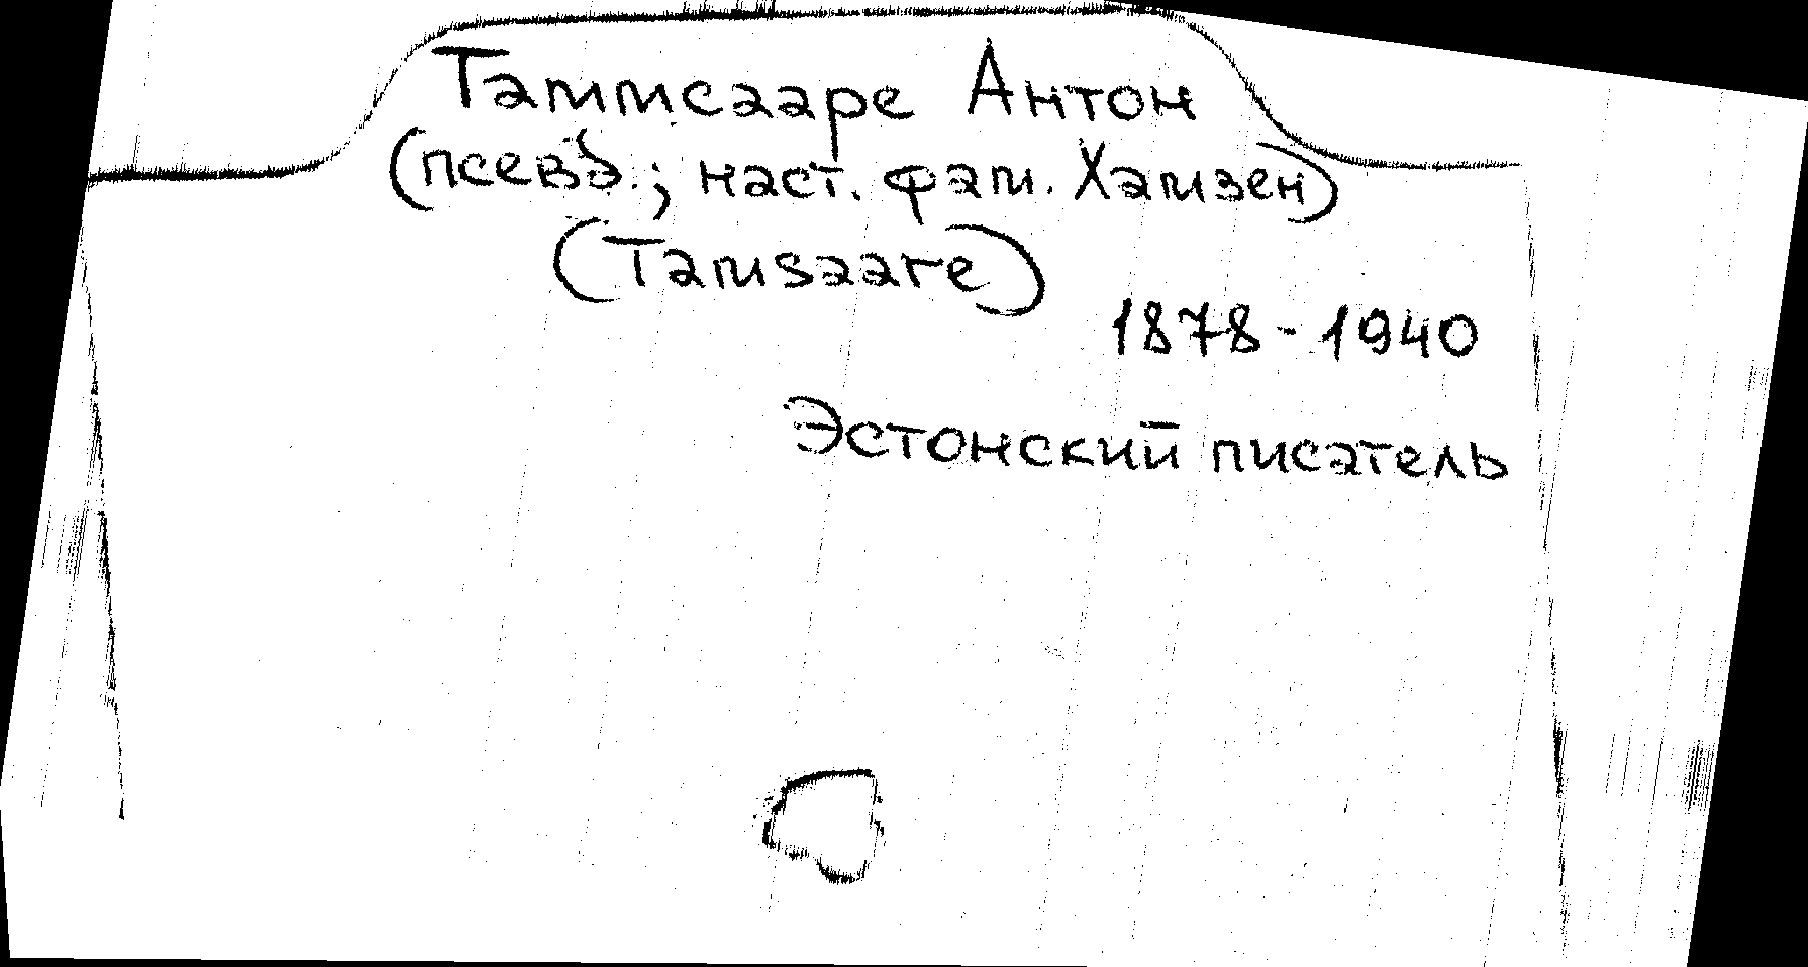 Таммсааре Антон
(псевд.; наст. фам. Хамзен)
(Tamsaare)
1878-1940
Эстонский писатель